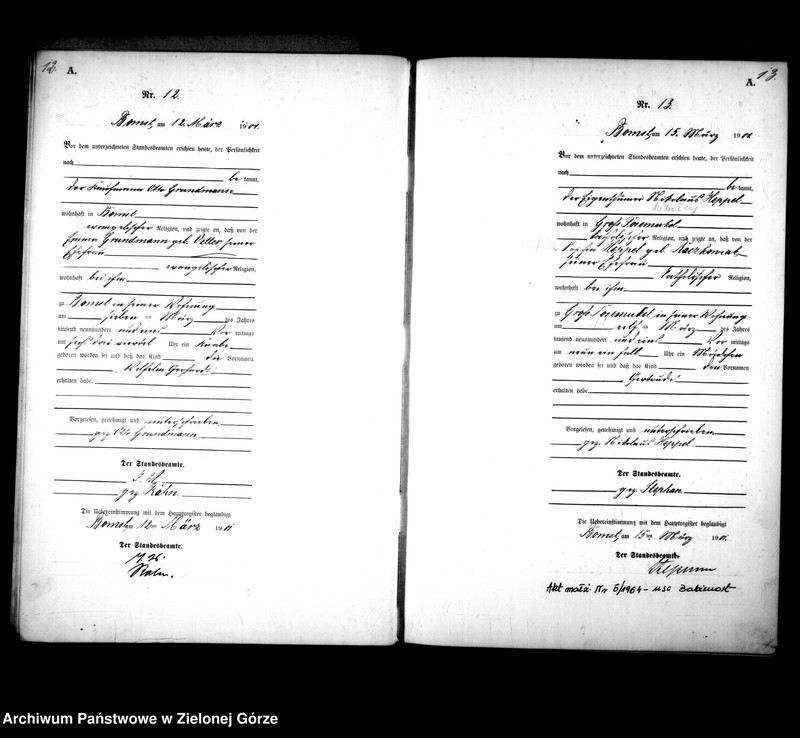 12.
A.
Nr. 12.
Bomst, am 12. März 1901.
Vor dem unterzeichneten Standesbeamten erschien heute, der Persönlichkeit
nach
be kannt,
der Kaufmann Otto Grundmann
wohnhaft in Bomst
evangelischer Religion, und zeigte an, daß von der
Emma Grundmann geb. Vetter seiner
Ehefrau
evangelischer Religion,
wohnhaft bei ihm
zu Bomst in seiner Wohnung
am sieben ten März des Jahres
tausend neunhundert und eins Vor mittags
um sechs drei viertel Uhr ein Knabe
geboren worden sei und daß das Kind die Vornamen
Wilhelm Gerhard
erhalten habe.
Vorgelesen, genehmigt und unterschrieben
gez. Otto Grundmann
Der Standesbeamte.
gez. Kahn.
Die Uebereinstimmung mit dem Hauptregister beglaubigt
Bomst, am 12ten März 1901
Der Standesbeamte.
13.
A.
Nr. 13.
Bomst, am 15. März 1901
Vor dem unterzeichneten Standesbeamten erschien heute, der Persönlichkeit
nach
be kannt,
der Eigenthümer Nikolaus Heppel
wohnhaft in Groß Posemukel
katholischer Religion, und zeigte an, daß von der
Sophia Heppel geb.
seiner Ehefrau
katholischer Religion,
wohnhaft bei ihm
zu Groß Posemukel in seiner Wohnung
am elf ten März des Jahres
tausend neunhundert und eins Vor mittags
um neun ein halb Uhr ein Mädchen
geboren worden sei und daß das Kind den Vornamen
Gertrude
erhalten habe.
Vorgelesen, genehmigt und unterschrieben
gez. Nikolaus Heppel
Der Standesbeamte.
gez. Stephan.
Die Uebereinstimmung mit dem Hauptregister beglaubigt
Bomst, am 15ten März 1901.
Der Standesbeamte.
Stephan
Akt małż. Nr 5/1964 - USC Babimost
Archiwum Państwowe w Zielonej Górze